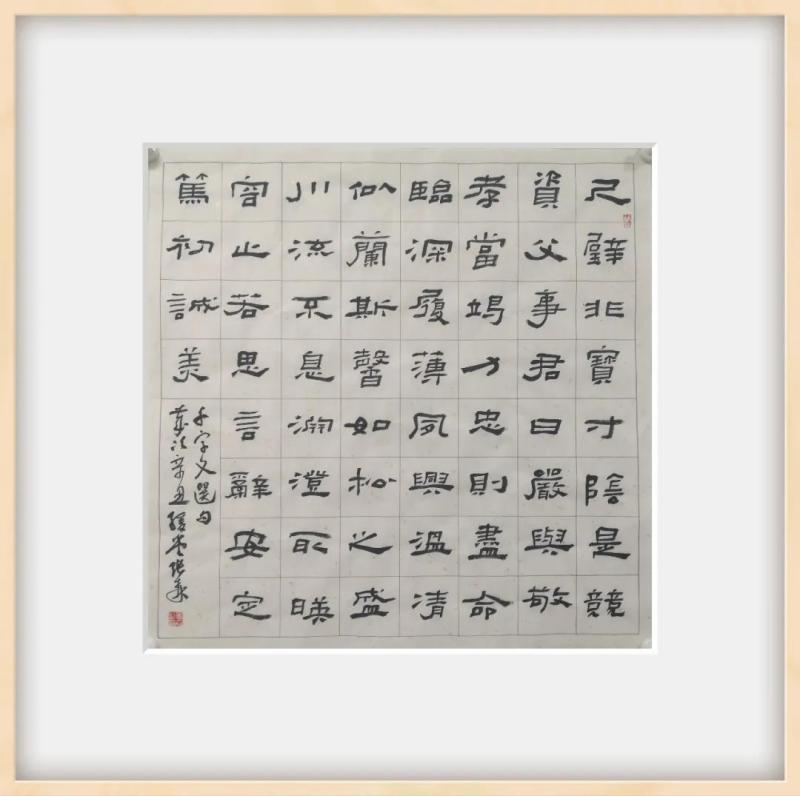 尺璧非寶寸陰是競
資父事君曰嚴與敬
孝當竭力忠則盡命
臨深履薄夙興溫清
似蘭斯馨如松之盛
川流不息淵澄取暎
容止若思言辭安定
篤初誠美
千字文選句
歲次辛丑